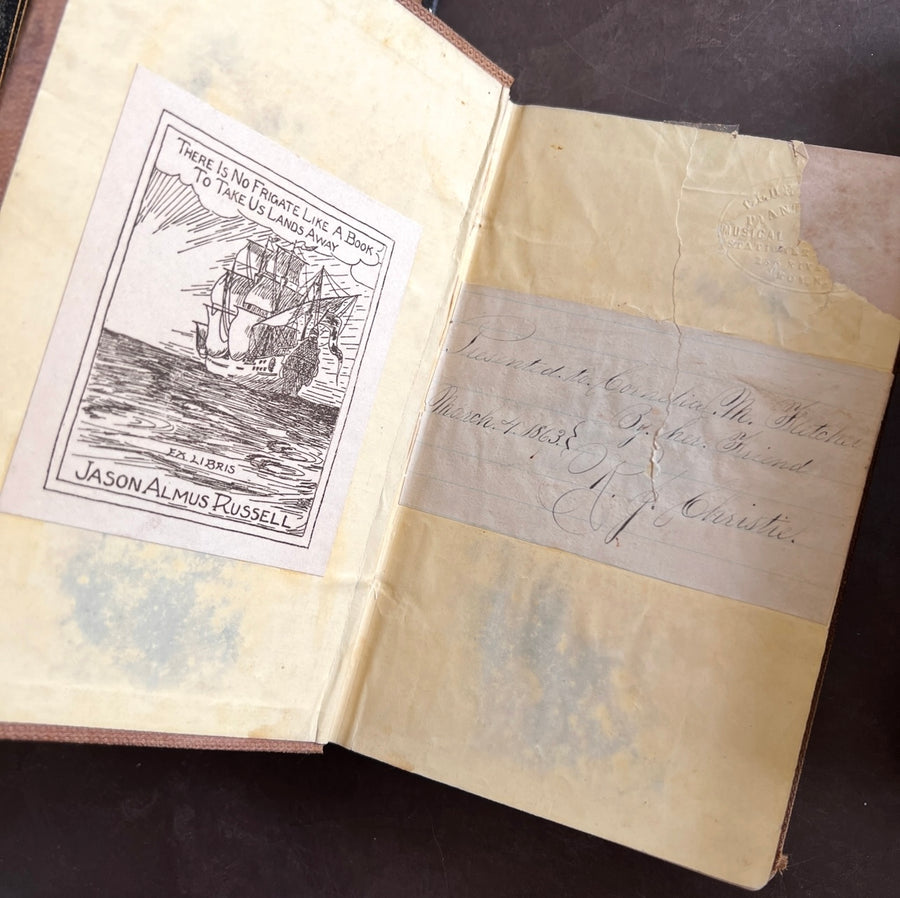 THERE IS NO FRIGATE LIKE A BOOK
TO TAKE US LANDS AWAY
EX LIBRIS
JASON ALMUS RUSSELL
Presented to Cornelia M. Fletcher
By her Friend
March 4. 1863.
R. J. Christie.
MUSICAL